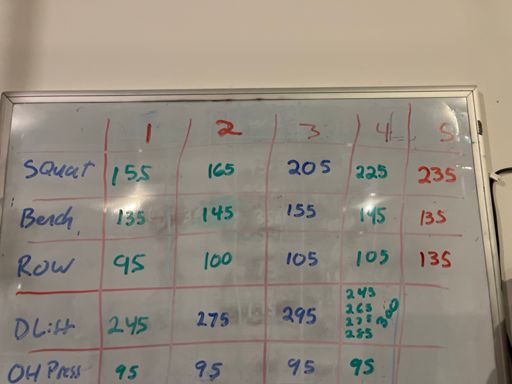 1 2 3 4 5
Squat 155 165 205 225 235
Bench 135 145 155 145 135
ROW 95 100 105 105 135
245
265
300
285
DLift 245 275 295
OH Press 95 95 95 95